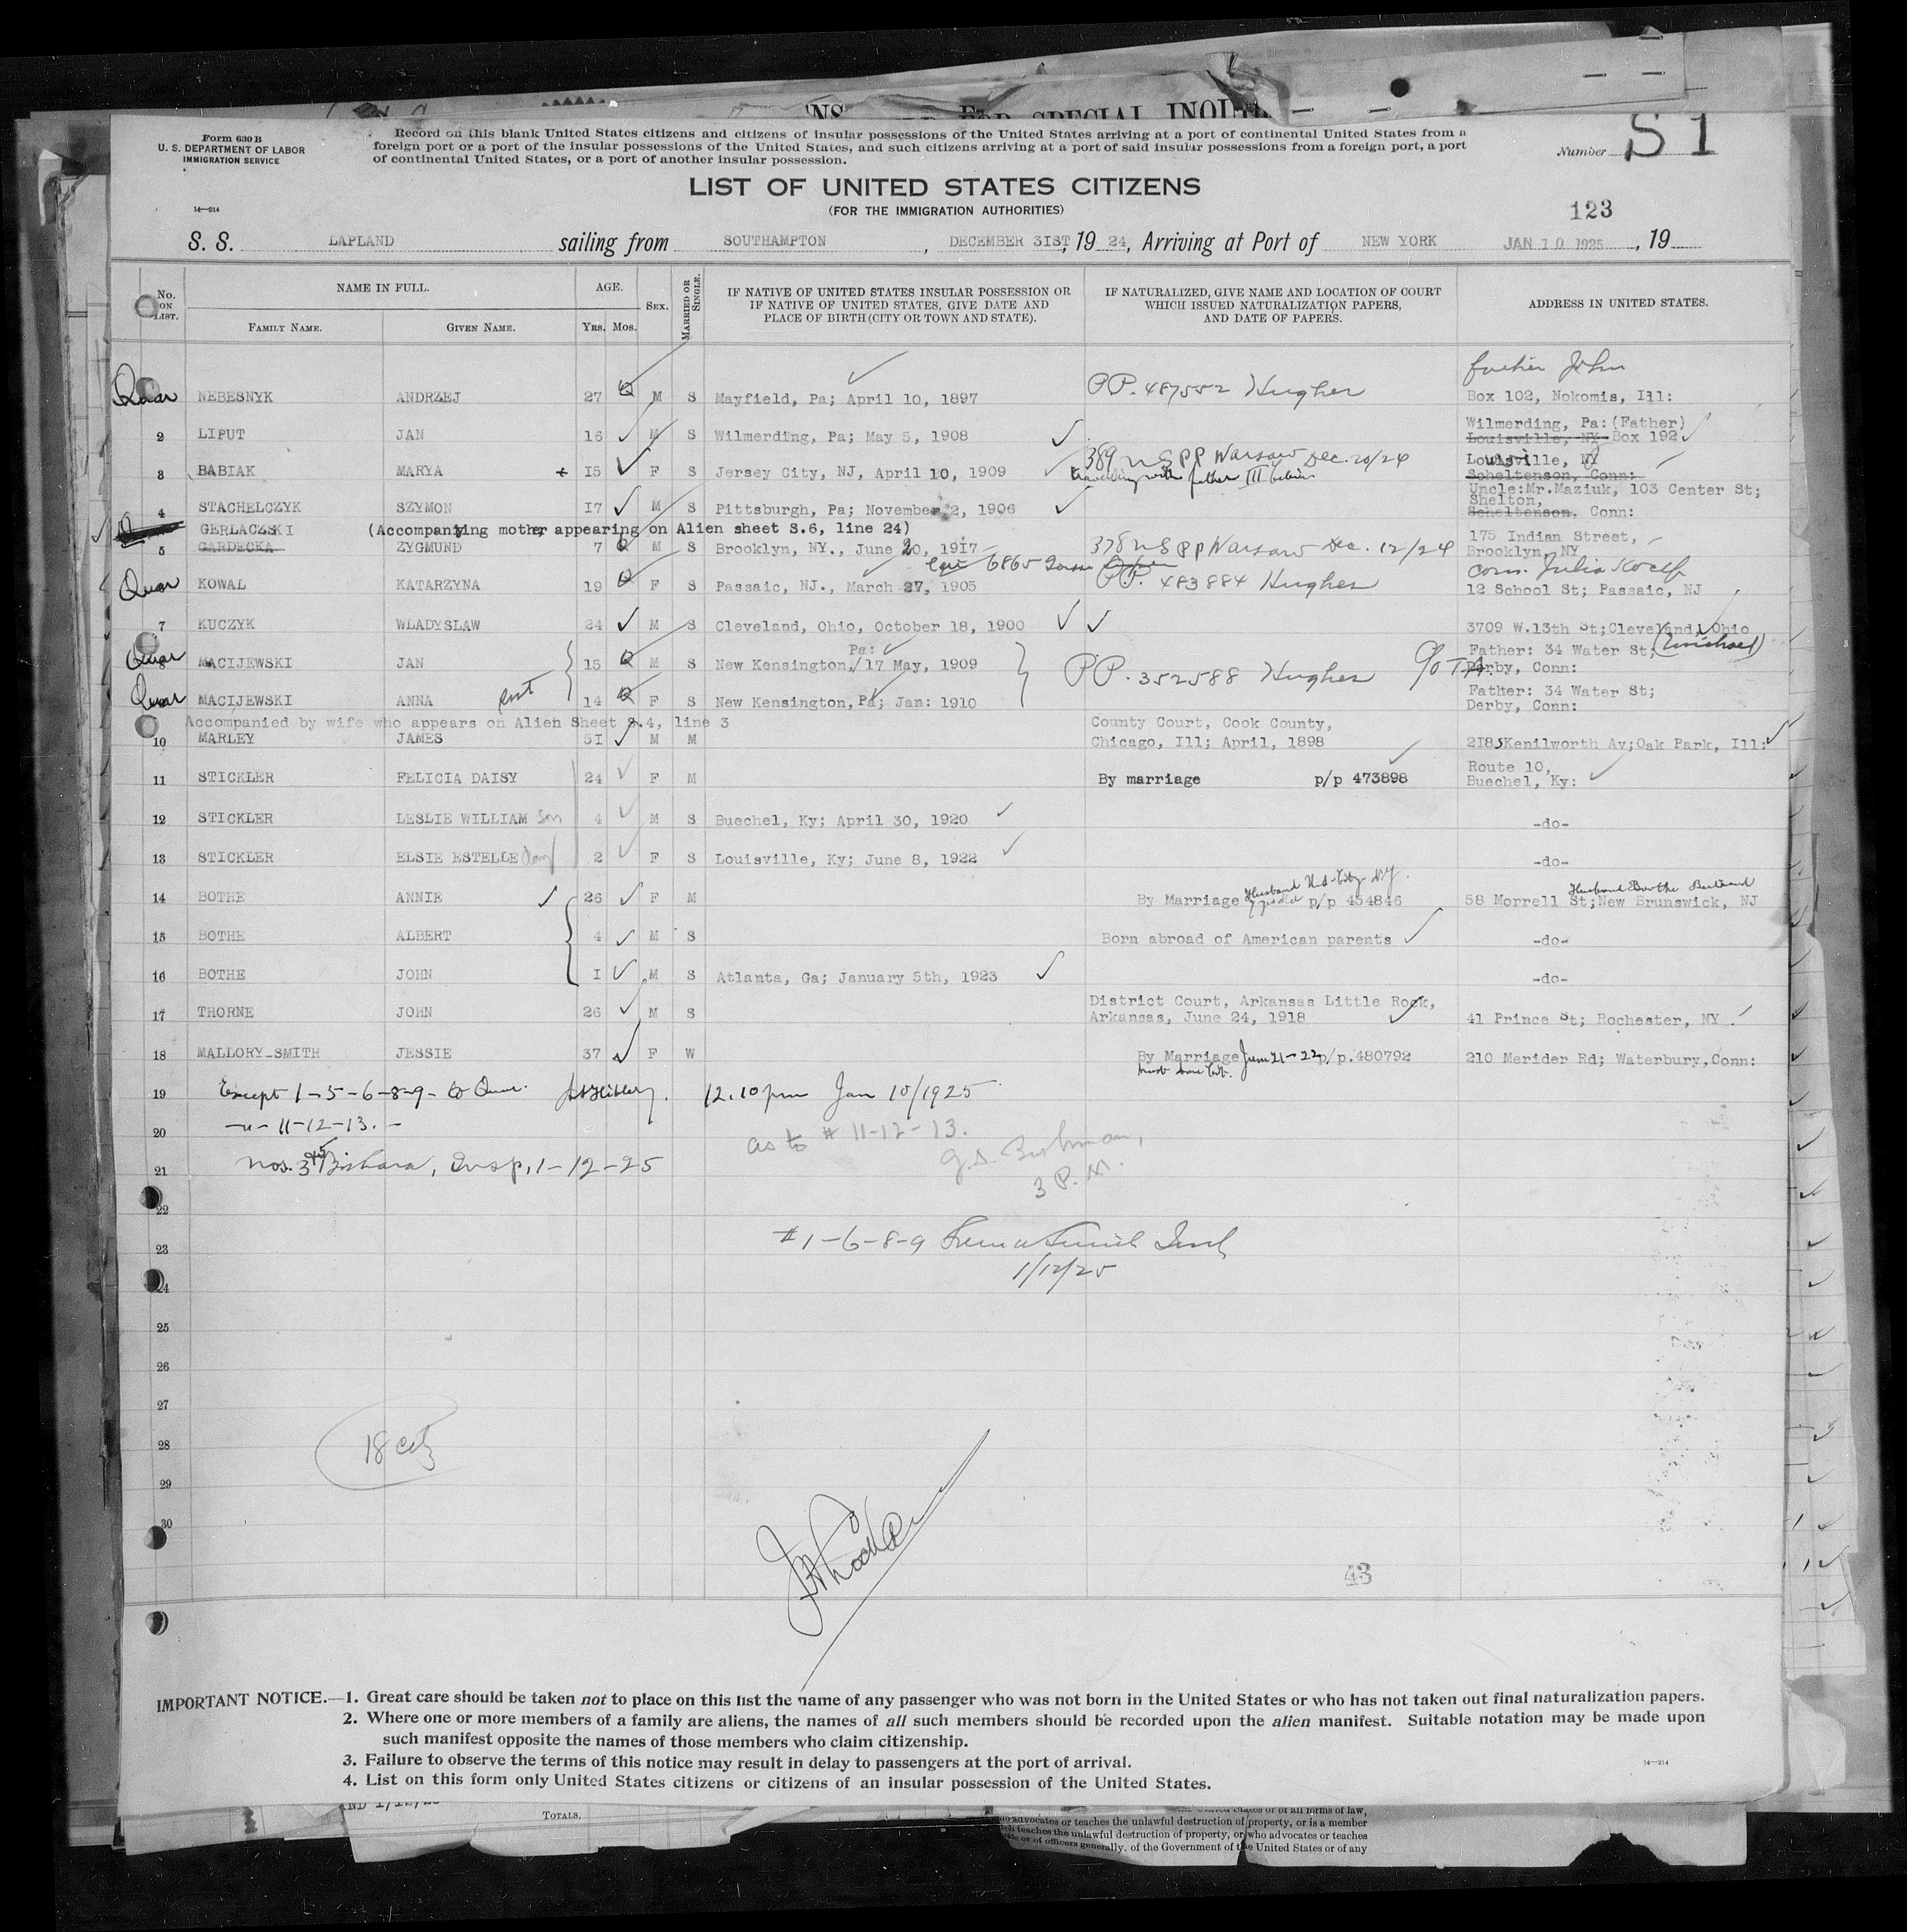 NS FOR SPECIAL INQU
Form 630 B
U. S. DEPARTMENT OF LABOR
IMMIGRATION SERVICE
14—214
Record on this blank United States citizens and citizens of insular possessions of the United States arriving at a port of continental United States from a
foreign port or a port of the insular possessions of the United States, and such citizens arriving at a port of said insular possessions from a foreign port, a port
of continental United States, or a port of another insular possession.
Number S 1
LIST OF UNITED STATES CITIZENS
(FOR THE IMMIGRATION AUTHORITIES)
123
S. S. LAPLAND sailing from SOUTHAMPTON, DECEMBER 31ST, 19 24, Arriving at Port of NEW YORK JAN 10 1925, 19
No. ON LIST. NAME IN FULL. FAMILY NAME. GIVEN NAME. AGE. YRS. MOS. SEX. MARRIED OR SINGLE.
IF NATIVE OF UNITED STATES INSULAR POSSESSION OR
IF NATIVE OF UNITED STATES, GIVE DATE AND
PLACE OF BIRTH (CITY OR TOWN AND STATE).
IF NATURALIZED, GIVE NAME AND LOCATION OF COURT
WHICH ISSUED NATURALIZATION PAPERS,
AND DATE OF PAPERS.
ADDRESS IN UNITED STATES.
father John
Quar NEBESNYK ANDRZEJ 27 Q M S Mayfield, Pa; April 10, 1897 PP. 487552 Hughes Box 102, Nokomis, Ill:
Wilmerding, Pa: (Father)
2 LIPUT JAN 16 M S Wilmerding, Pa; May 5, 1908 Louisville, NY Box 192
389 US PP Warsaw Dec. 20/24 Louisville, NY
3 BABIAK MARYA 15 F S Jersey City, NJ, April 10, 1909 travelling with father III Scheltenson, Conn:
Uncle:Mr.Maziuk, 103 Center St;
Shelton,
4 STACHELCZYK SZYMON 17 M S Pittsburgh, Pa; November 2, 1906 Scheltenson, Conn:
GERLACZSKI (Accompanying mother appearing on Alien sheet S.6, line 24)
175 Indian Street,
5 GARDECKA ZYGMUND 7 Q M S Brooklyn, NY., June 20, 1917 378 US PP Warsaw Dec. 12/24 Brooklyn, NY
6865
Quar KOWAL KATARZYNA 19 Q F S Passaic, NJ., March 27, 1905 PP. 483884 Hughes
12 School St; Passaic, NJ
7 KUCZYK WLADYSLAW 24 M S Cleveland, Ohio, October 18, 1900 3709 W.13th St;Cleveland, Ohio
Father: 34 Water St; (Michael)
Quar MACIJEWSKI JAN 15 Q M S New Kensington, Pa: 17 May, 1909 PP. 352588 Hughes Derby, Conn:
Father: 34 Water St;
Quar MACIJEWSKI ANNA 14 Q F S New Kensington, Pa; Jan: 1910 Derby, Conn:
Accompanied by wife who appears on Alien Sheet S.4, line 3 County Court, Cook County,
10 MARLEY JAMES 51 M M Chicago, Ill; April, 1898 2185 Kenilworth Av;Oak Park, Ill:
Route 10,
11 STICKLER FELICIA DAISY 24 F M By marriage p/p 473898 Buechel, Ky:
12 STICKLER LESLIE WILLIAM Son 4 M S Buechel, Ky; April 30, 1920 -do-
13 STICKLER ELSIE ESTELLE 2 F S Louisville, Ky; June 8, 1922 -do-
14 BOTHE ANNIE 26 F M By Marriage Husband p/p 454846 58 Morrell St;New Brunswick, NJ
15 BOTHE ALBERT 4 M S Born abroad of American parents -do-
16 BOTHE JOHN 1 M S Atlanta, Ga; January 5th, 1923 -do-
District Court, Arkansas Little Rock,
17 THORNE JOHN 26 M S Arkansas, June 24, 1918 41 Prince St; Rochester, NY
18 MALLORY-SMITH JESSIE 37 F W By Marriage p/p.480792 210 Merider Rd; Waterbury,Conn:
19 Except 1-5-6-8-9- to Quar. 12.10 pm Jan 10/1925
20 -"- 11-12-13. -
as to # 11-12-13.
21 Nos. 3 Insp, 1-12-25
3 P.M.
22
23 #1-6-8-9
24 1/12/25
25
26
27
28 18
29
30
43
IMPORTANT NOTICE.—1. Great care should be taken not to place on this list the name of any passenger who was not born in the United States or who has not taken out final naturalization papers.
2. Where one or more members of a family are aliens, the names of all such members should be recorded upon the alien manifest. Suitable notation may be made upon
such manifest opposite the names of those members who claim citizenship.
3. Failure to observe the terms of this notice may result in delay to passengers at the port of arrival.
4. List on this form only United States citizens or citizens of an insular possession of the United States.
14—214
TOTALS,
United States or of all forms of law,
advocates or teaches the unlawful destruction of property, or is a member
teaches the unlawful destruction of property, or who advocates or teaches
or of officers generally, of the Government of the United States or of any